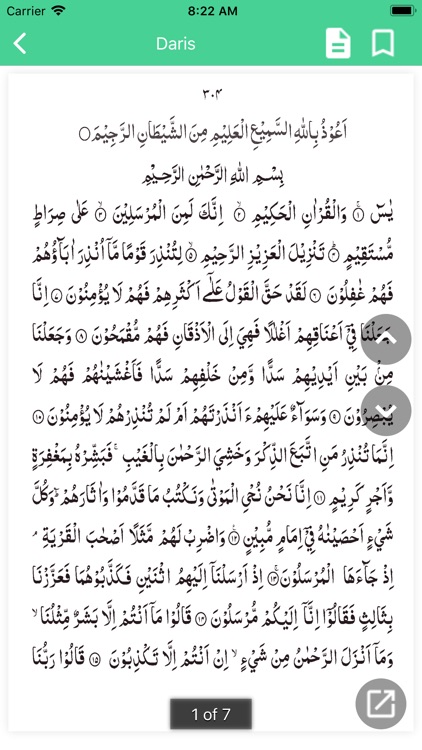 Carrier 8:22 AM
Daris
۳۰۴
اَعُوْذُ بِاللهِ السَّمِيْعِ الْعَلِيْمِ مِنَ الشَّيْطَانِ الرَّجِيْمِ○
بِسْمِ اللهِ الرَّحْمٰنِ الرَّحِيْمِ
يٰسٓ ۝۱ وَالْقُرْاٰنِ الْحَكِيْمِ ۝۲ اِنَّكَ لَمِنَ الْمُرْسَلِيْنَ ۝۳ عَلٰى صِرَاطٍ
مُّسْتَقِيْمٍ ۝۴ تَنْزِيْلَ الْعَزِيْزِ الرَّحِيْمِ ۝۵ لِتُنْذِرَ قَوْمًا مَّآ اُنْذِرَ اٰبَآؤُهُمْ
فَهُمْ غٰفِلُوْنَ ۝۶ لَقَدْ حَقَّ الْقَوْلُ عَلٰٓى اَكْثَرِهِمْ فَهُمْ لَا يُؤْمِنُوْنَ ۝۷ اِنَّا
جَعَلْنَا فِيْٓ اَعْنَاقِهِمْ اَغْلٰلًا فَهِيَ اِلَى الْاَذْقَانِ فَهُمْ مُّقْمَحُوْنَ ۝۸ وَجَعَلْنَا
مِنْۢ بَيْنِ اَيْدِيْهِمْ سَدًّا وَّمِنْ خَلْفِهِمْ سَدًّا فَاَغْشَيْنٰهُمْ فَهُمْ لَا
يُبْصِرُوْنَ ۝۹ وَسَوَآءٌ عَلَيْهِمْ ءَاَنْذَرْتَهُمْ اَمْ لَمْ تُنْذِرْهُمْ لَا يُؤْمِنُوْنَ ۝۱۰
اِنَّمَا تُنْذِرُ مَنِ اتَّبَعَ الذِّكْرَ وَخَشِيَ الرَّحْمٰنَ بِالْغَيْبِ ۚ فَبَشِّرْهُ بِمَغْفِرَةٍ
وَّاَجْرٍ كَرِيْمٍ ۝۱۱ اِنَّا نَحْنُ نُحْيِ الْمَوْتٰى وَنَكْتُبُ مَا قَدَّمُوْا وَاٰثَارَهُمْ ۗ وَكُلَّ
شَيْءٍ اَحْصَيْنٰهُ فِيْٓ اِمَامٍ مُّبِيْنٍ ۝۱۲ وَاضْرِبْ لَهُمْ مَّثَلًا اَصْحٰبَ الْقَرْيَةِ ۘ
اِذْ جَآءَهَا الْمُرْسَلُوْنَ ۝۱۳ اِذْ اَرْسَلْنَآ اِلَيْهِمُ اثْنَيْنِ فَكَذَّبُوْهُمَا فَعَزَّزْنَا
بِثَالِثٍ فَقَالُوْٓا اِنَّآ اِلَيْكُمْ مُّرْسَلُوْنَ ۝۱۴ قَالُوْا مَآ اَنْتُمْ اِلَّا بَشَرٌ مِّثْلُنَا ۙ
وَمَآ اَنْزَلَ الرَّحْمٰنُ مِنْ شَيْءٍ ۙ اِنْ اَنْتُمْ اِلَّا تَكْذِبُوْنَ ۝۱۵ قَالُوْا رَبُّنَا
1 of 7